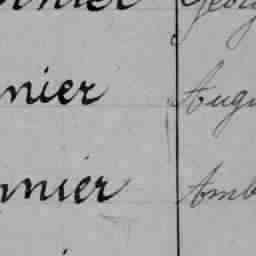 nier Georg
nier Augu
nier Amb